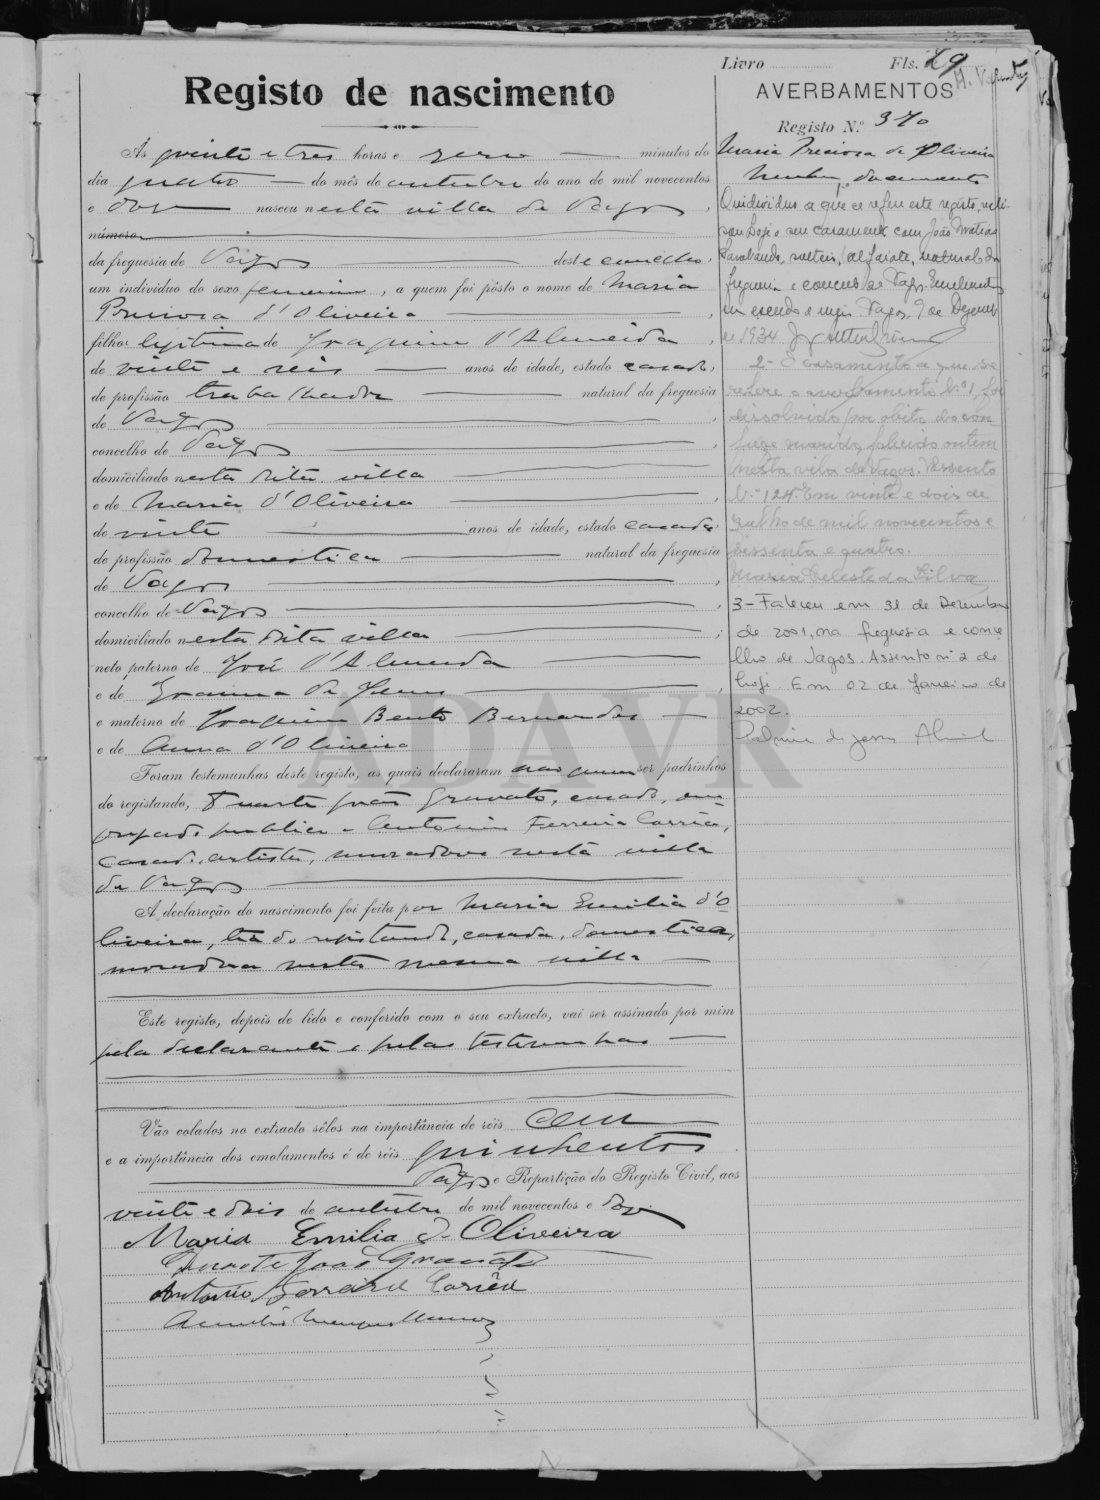 Livro Fls. 29
Registo de nascimento
AVERBAMENTOS
Registo N.º 370
Ás vinte e tres horas e zero minutos do
dia quatro do mês de outubro do ano de mil novecentos
e doze nasceu nesta villa de Vagos,
número
da freguesia de Vagos deste concelho,
um individuo do sexo feminino, a quem foi pôsto o nome de Maria
Preciosa d'Oliveira,
filha legitima de Joaquim d'Almeida,
de vinte e seis anos de idade, estado casado,
de profissão trabalhador natural da freguesia
de Vagos,
concelho de Vagos,
domiciliado nesta dita villa
e de Maria d'Oliveira,
de vinte anos de idade, estado casada,
de profissão domestica natural da freguesia
de Vagos,
concelho de Vagos,
domiciliado nesta dita villa;
neto paterno de José d'Almeida
e de Joanna de Jesus,
e materno de Joaquim Bento Bernardes
e de Anna d'Oliveira
Foram testemunhas deste registo, as quais declararam ser padrinhos
do registando, Duarte João Gravato, casado, em
pregado publico e Antonio Ferreira Corrêa,
casado, artista, moradores nesta villa
de Vagos
A declaração do nascimento foi feita por Maria Emilia d'O
liveira, tia do registando, casada, domestica,
moradora nesta mesma villa
Este registo, depois de lido e conferido com o seu extracto, vai ser assinado por mim
pela declarante e pelas testemunhas
Vão colados no extracto sêlos na importância de réis cem
e a importância dos emolumentos é de réis quinhentos.
Vagos e Repartição do Registo Civil, aos
vinte e dois de outubro de mil novecentos e doze
Maria Emilia d'Oliveira
Duarte João Gravato
Antonio Ferreira Corrêa
Maria Preciosa de Oliveira
Nenhum documento
O individuo a que se refere este registo, reali-
sou hoje o seu casamento com João Matias
solteiro, alfaiate, natural da
freguesia e concelho de Vagos.
Vagos, 9 de Dezembro
de 1934
2 - O casamento a que se
refere o averbamento N.º 1, foi
dissolvido por obito do côn
juge marido, falecido ontem
nesta vila de Vagos. Assento
N.º 124. Em vinte e dois de
Julho de mil novecentos e
sessenta e quatro.
Maria Celeste da Silva
3 - Faleceu em 31 de Dezembro
de 2001, na freguesia e conce
lho de Vagos. Assento nº 2 de
hoje. Em 02 de Janeiro de
2002.
ADAVR